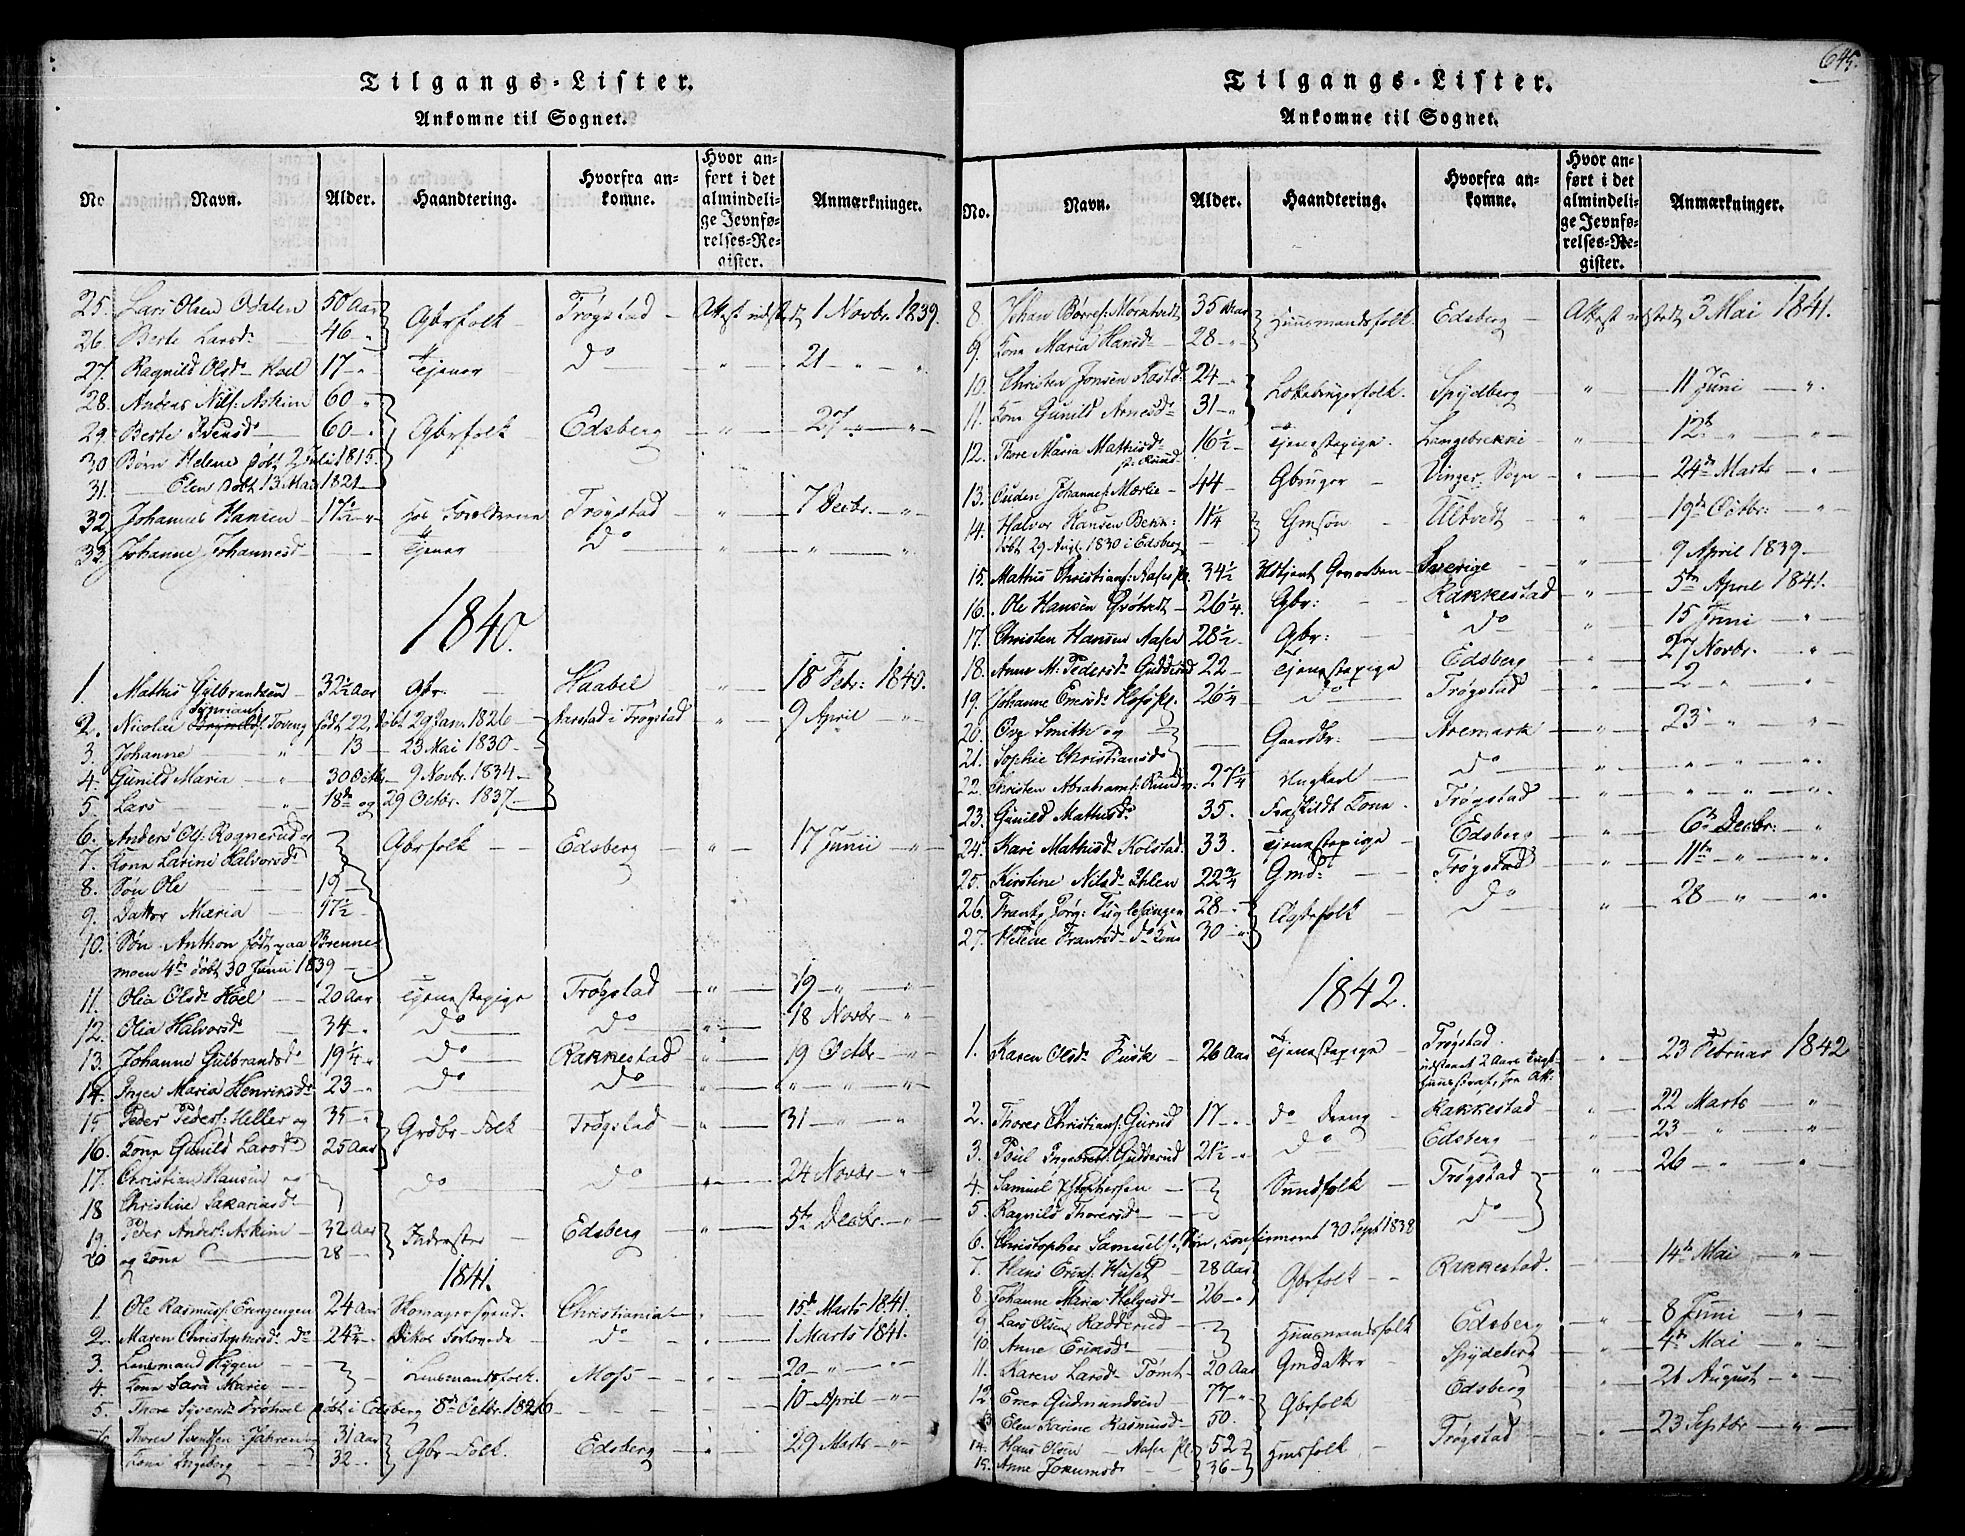 Tilgangs-Lister.
Ankomne til Sognet.
No Navn. Alder. Haandtering. Hvorfra ankomne. Hvor anført i det almindelige Jevnførelses-Register. Anmærkninger.
25. Lars Olsen Odalen 50 Aar Gbrfolk Trøgstad Attest udstedt 1 Novbr. 1839.
26. Berte Larsd. 46 - "
27. Ragnild Olsd. Hoel 17 - " Tjener do " 21 - " - "
28. Anders Nils: Askim 60 - "
29. Berte Svensd. 60 - " Gbrfolk Edsberg " 27 " - "
30. Børn Helene døbt 2 Juli 1815.
31. - Elen døbt 13 Mai 1821
32. Johannes Hansen 17½ - " hos Forældrene Trøgstad " 7 Decbr. - "
33. Johanne Johannesd. - Tjener do " " "
1840.
1. Mathis Gulbrandsen 32½ Aar Gbr. Haabøl " 18 Febr: 1840.
2. Nicolai Syvriants. Toveng født 22, døbt 29 Jan. 1826 - Aarstad i Trøgstad " 9 April "
3. Johanne " 13 - 23 Mai 1830 -
4. Gunild Maria - " 30 Octb. - 9 Novbr. 1834 -
5. Lars " 18de og 29 Octbr. 1837. -
6. Anders Ols: Rognerud og Gbrfolk - Edsberg - " 17 Junii - "
7. Kona Larine Halvorsd.
8. Søn Ole - 19 -
9. Datter Maria - 17½ -
10. Søn Anthon født paa Brenne
moen 4de døbt 30 Junii 1839 -
11. Olia Olsd. Hoel - 20 Aar Tjenestepige Trøgstad " 19 - " - "
12. Olia Halvorsd. - 34 - " do do " 18 Novbr - "
13. Johanne Gulbrandsd. 19¼ - " do Rakkestad " 19 Octbr - "
14. Inger Maria Henriksd. 23 - " do do " " " "
15 Peder Peders: Heller og 35 - " Grdbr. Folk Trøgstad " 31 " - "
16. Kona Gunild Larsd. 25 Aar
17. Christian Hansen og do do " 24 Novbr - "
18 Christine Sakariasd.
19. Peder Anders: Askim - 32 Aar Inderster - Edsberg " 5te Decbr. - "
20 og Kona 28 - "
1841.
1. Ole Rasmuss: Erengengen 24 Aar Skomagersvend. Christiania " 15de Marts 1841.
2. Maren Christophersd. do 24½ - Dito Forlovede do " 1 Marts 1841.
3. Lensmand Hygen - Lensmandsfolk. Moss - " 20 - " - "
4. Kona Sara Marie - -
5. Thore Syversd. Frøhoel født i Edsberg 8de Octbr. 1826 10 April - "
Thorer Svendsen Jahren 31 Aar Gbr-Folk. Edsberg - " 29 Marts - "
Kona Ingeborg - 32 - "
645.
Tilgangs-Lister.
Ankomne til Sognet.
No. Navn. Alder. Haandtering. Hvorfra ankomne. Hvor anført i det almindelige Jevnførelses-Register. Anmærkninger.
8. Johan Børres: Mørtvedt 35 Aar Huusmandsfolk. Edsberg - Attest udstedt 3 Mai 1841.
9. Kona Maria Hansd. 28 - "
10. Christen Jonsen Rastd. 24 - " Løkebrugerfolk. Spydberg " 11 Juni - ".
11. Kona Gunild Arnesd. 31 - "
12. Thore Maria Mathisd. 16½ - Tjenestepige. Langebrekke " 12te " - "
13. Ouden Johannes: Mærlie - 44 - Gbruger - Vinger Sogn " 24de Marts - "
14. Halvor Hansen Bekk: 11¼ Gmsøn - Ultvedt " 19de Octbr: - "
døbt 29 Aug. 1830 i Edsberg
15. Mathis Christians: Aases pl. 34½ Udtjent Sverige - " 9 April 1839 -
16. Ole Hansen Grøtvedt - 26¼. Gbr: - Rakkestad " 5te April 1841.
17. Christen Hansen Aasen 28½ - Gbr: do " 15 Juni - "
18. Anne M: Pedersd. Gudderud 22 - Tjenestepige Edsberg " 27 Novbr. "
19. Johanne Emesd. Hofs pl. 26¼ - do - Trøgstad " 2 - " "
20. Ove Smith og - Gaardbr. - Aremark " 23 " "
21. Sophie Christiansd. do " " "
22. Christen Abrahams: Ruud 27¾ Ungkarl - Trøgstad " " "
23. Gunild Mathisd. 35. Fraskildt Kone. Trøgstad
24. Kari Mathisd. Kolstad. 33. Tjenestepige - Edsberg " 6te Decbr: "
25. Kirstine Nilsd. Ihlen 22¾ Gmd: - Trøgstad " 11te " ".
26. Frants Jørg: Fuglesangen 28 - " Ligtefolk - do " 28 - " "
27. Helene Frantsd. do Kone 30 - "
1842.
1. Karen Olsd. Fusk - 26 Aar Tjenestepige - Trøgstad. " 23 Februar 1842
udstaaet 2 Aars
2. Thores Christians: Gurud 17 - " do Dreng Rakkestad - " 22 Marts - "
3. Poul Ingebrets: Gudderud 21½ - " do Edsberg - " 23 " "
4. Samuel Pstophersen - Sundfolk - Trøgstad " 26 " "
5. Ragnild Thorersd. do
6. Christopher Samuels:, Søn, confirmeret 30 Sept 1838
7. Hans Eriks: Huset 28 Aar Gbrfolk - Rakkestad. 14de Mai - "
8. Johanne Maria Helgesd. - 26 - "
9 Lars Olsen Kadderud - Huusmandsfolk Edsberg " 8 Juni "
10. Anne Eriksd. - Spydeberg " 4de Mai - "
11. Karen Larsd. Tømt 20 Aar Gmdatter Edsberg " 21 August - "
12 Ener Gudmundsen 77 - " Gbrfolk
13 Elen Karine Rasmusd. 50.
14. Hans Olsen - Aasen Pl. 52 - Huusfolk - Trøgstad " 23 Septbr - "
15. Anne Jokumsd. - 36 -